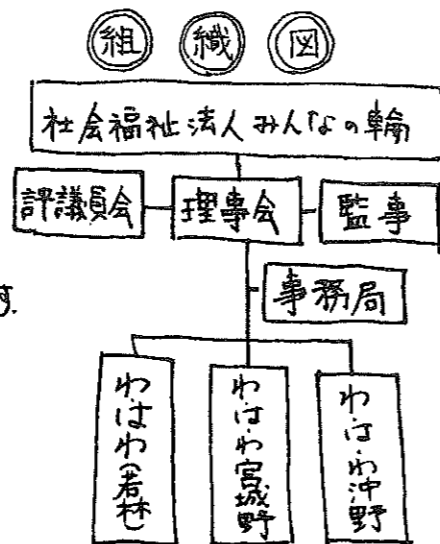 組織図
社会福祉法人みんなの輪
評議員会 理事会 監事
事務局
す。
わ・は・わ若林
わ・は・わ宮城野
わ・は・わ沖野